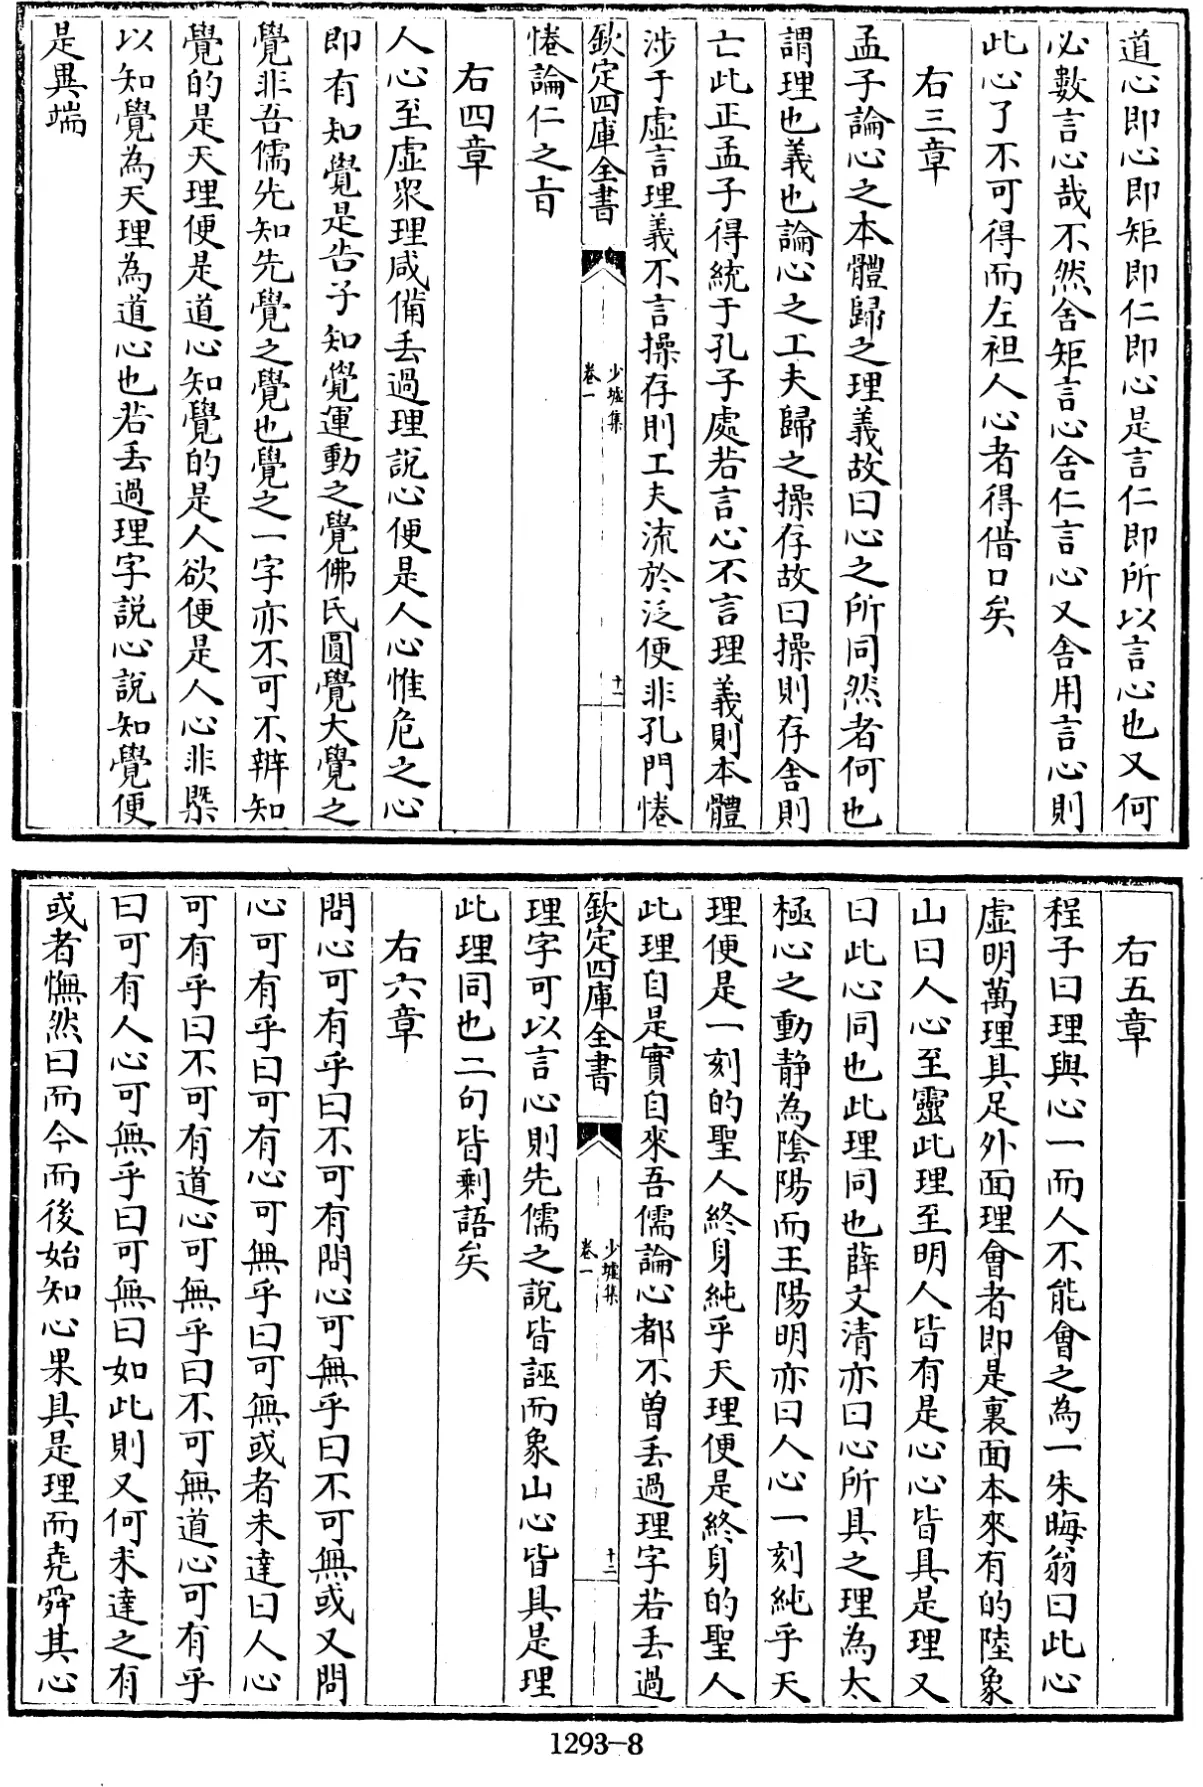 道心即心即矩即仁即心是言仁即所以言心也又何
必數言心哉不然舍矩言心舍仁言心又舍用言心則
此心了不可得而左袒人心者得借口矣
右三章
孟子論心之本體歸之理義故曰心之所同然者何也
謂理也義也論心之工夫歸之操存故曰操則存舍則
亡此正孟子得統于孔子處若言心不言理義則本體
涉于虛言理義不言操存則工夫流於泛便非孔門惓
欽定四庫全書
少墟集
卷一
十一
惓論仁之旨
右四章
人心至虛衆理咸備丟過理說心便是人心惟危之心
即有知覺是告子知覺運動之覺佛氏圓覺大覺之
覺非吾儒先知先覺之覺也覺之一字亦不可不辨知
覺的是天理便是道心知覺的是人欲便是人心非槩
以知覺為天理為道心也若丟過理字說心說知覺便
是異端
右五章
程子曰理與心一而人不能會之為一朱晦翁曰此心
虛明萬理具足外面理會者即是裏面本來有的陸象
山曰人心至靈此理至明人皆有是心心皆具是理又
曰此心同也此理同也薛文清亦曰心所具之理為太
極心之動靜為陰陽而王陽明亦曰人心一刻純乎天
理便是一刻的聖人終身純乎天理便是終身的聖人
此理自是實自來吾儒論心都不曾丟過理字若丟過
欽定四庫全書
少墟集
卷一
十二
理字可以言心則先儒之說皆誣而象山心皆具是理
此理同也二句皆剩語矣
右六章
問心可有乎曰不可有問心可無乎曰不可無或又問
心可有乎曰可有心可無乎曰可無或者未達曰人心
可有乎曰不可有道心可無乎曰不可無道心可有乎
曰可有人心可無乎曰可無曰如此則又何未達之有
或者憮然曰而今而後始知心果具是理而堯舜其心
1293-8